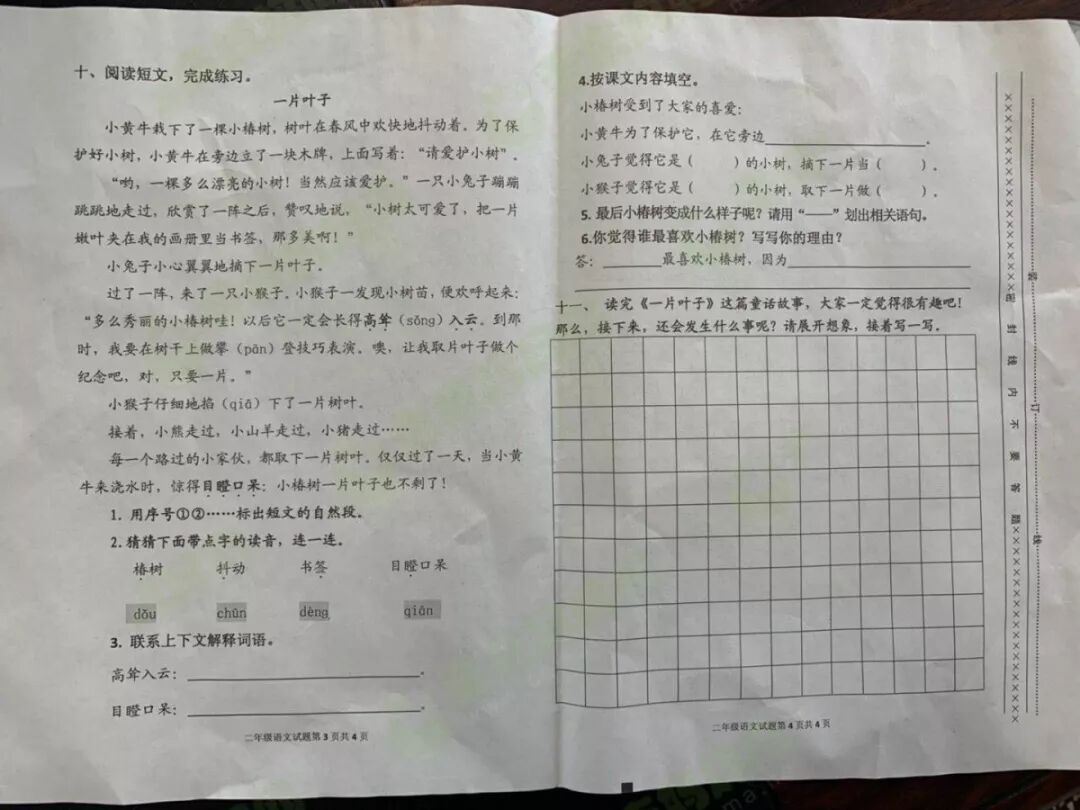 十、阅读短文，完成练习。
一片叶子
小黄牛栽下了一棵小椿树，树叶在春风中欢快地抖动着。为了保
护好小树，小黄牛在旁边立了一块木牌，上面写着：“请爱护小树”。
“哟，一棵多么漂亮的小树！当然应该爱护。”一只小兔子蹦蹦
跳跳地走过，欣赏了一阵之后，赞叹地说，“小树太可爱了，把一片
嫩叶夹在我的画册里当书签，那多美啊！”
小兔子小心翼翼地摘下一片叶子。
过了一阵，来了一只小猴子。小猴子一发现小树苗，便欢呼起来：
“多么秀丽的小椿树哇！以后它一定会长得高耸（sǒng）入云。到那
时，我要在树干上做攀（pān）登技巧表演。噢，让我取片叶子做个
纪念吧，对，只要一片。”
小猴子仔细地掐（qiā）下了一片树叶。
接着，小熊走过，小山羊走过，小猪走过……
每一个路过的小家伙，都取下一片树叶。仅仅过了一天，当小黄
牛来浇水时，惊得目瞪口呆：小椿树一片叶子也不剩了！
1. 用序号①②……标出短文的自然段。
2. 猜猜下面带点字的读音，连一连。
椿树 抖动 书签 目瞪口呆
dǒu chūn dèng qiān
3. 联系上下文解释词语。
高耸入云：________________。
目瞪口呆：________________。
二年级语文试题第 3 页共 4 页
4.按课文内容填空。
小椿树受到了大家的喜爱：
小黄牛为了保护它，在它旁边________________。
小兔子觉得它是（    ）的小树，摘下一片当（    ）。
小猴子觉得它是（    ）的小树，取下一片做（    ）。
5. 最后小椿树变成什么样子呢？请用“——”划出相关语句。
6.你觉得谁最喜欢小椿树？写写你的理由？
答：______最喜欢小椿树，因为________________
十一、 读完《一片叶子》这篇童话故事，大家一定觉得很有趣吧！
那么，接下来，还会发生什么事呢？请展开想象，接着写一写。
二年级语文试题第 4 页共 4 页
××××××××××××密 封 线 内 不 要 答 题××××××××××××
装 订 线